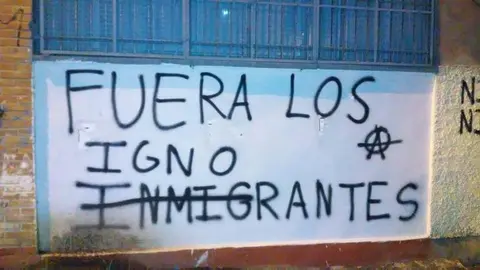 FUERA LOS
IGNO
INMIGRANTES